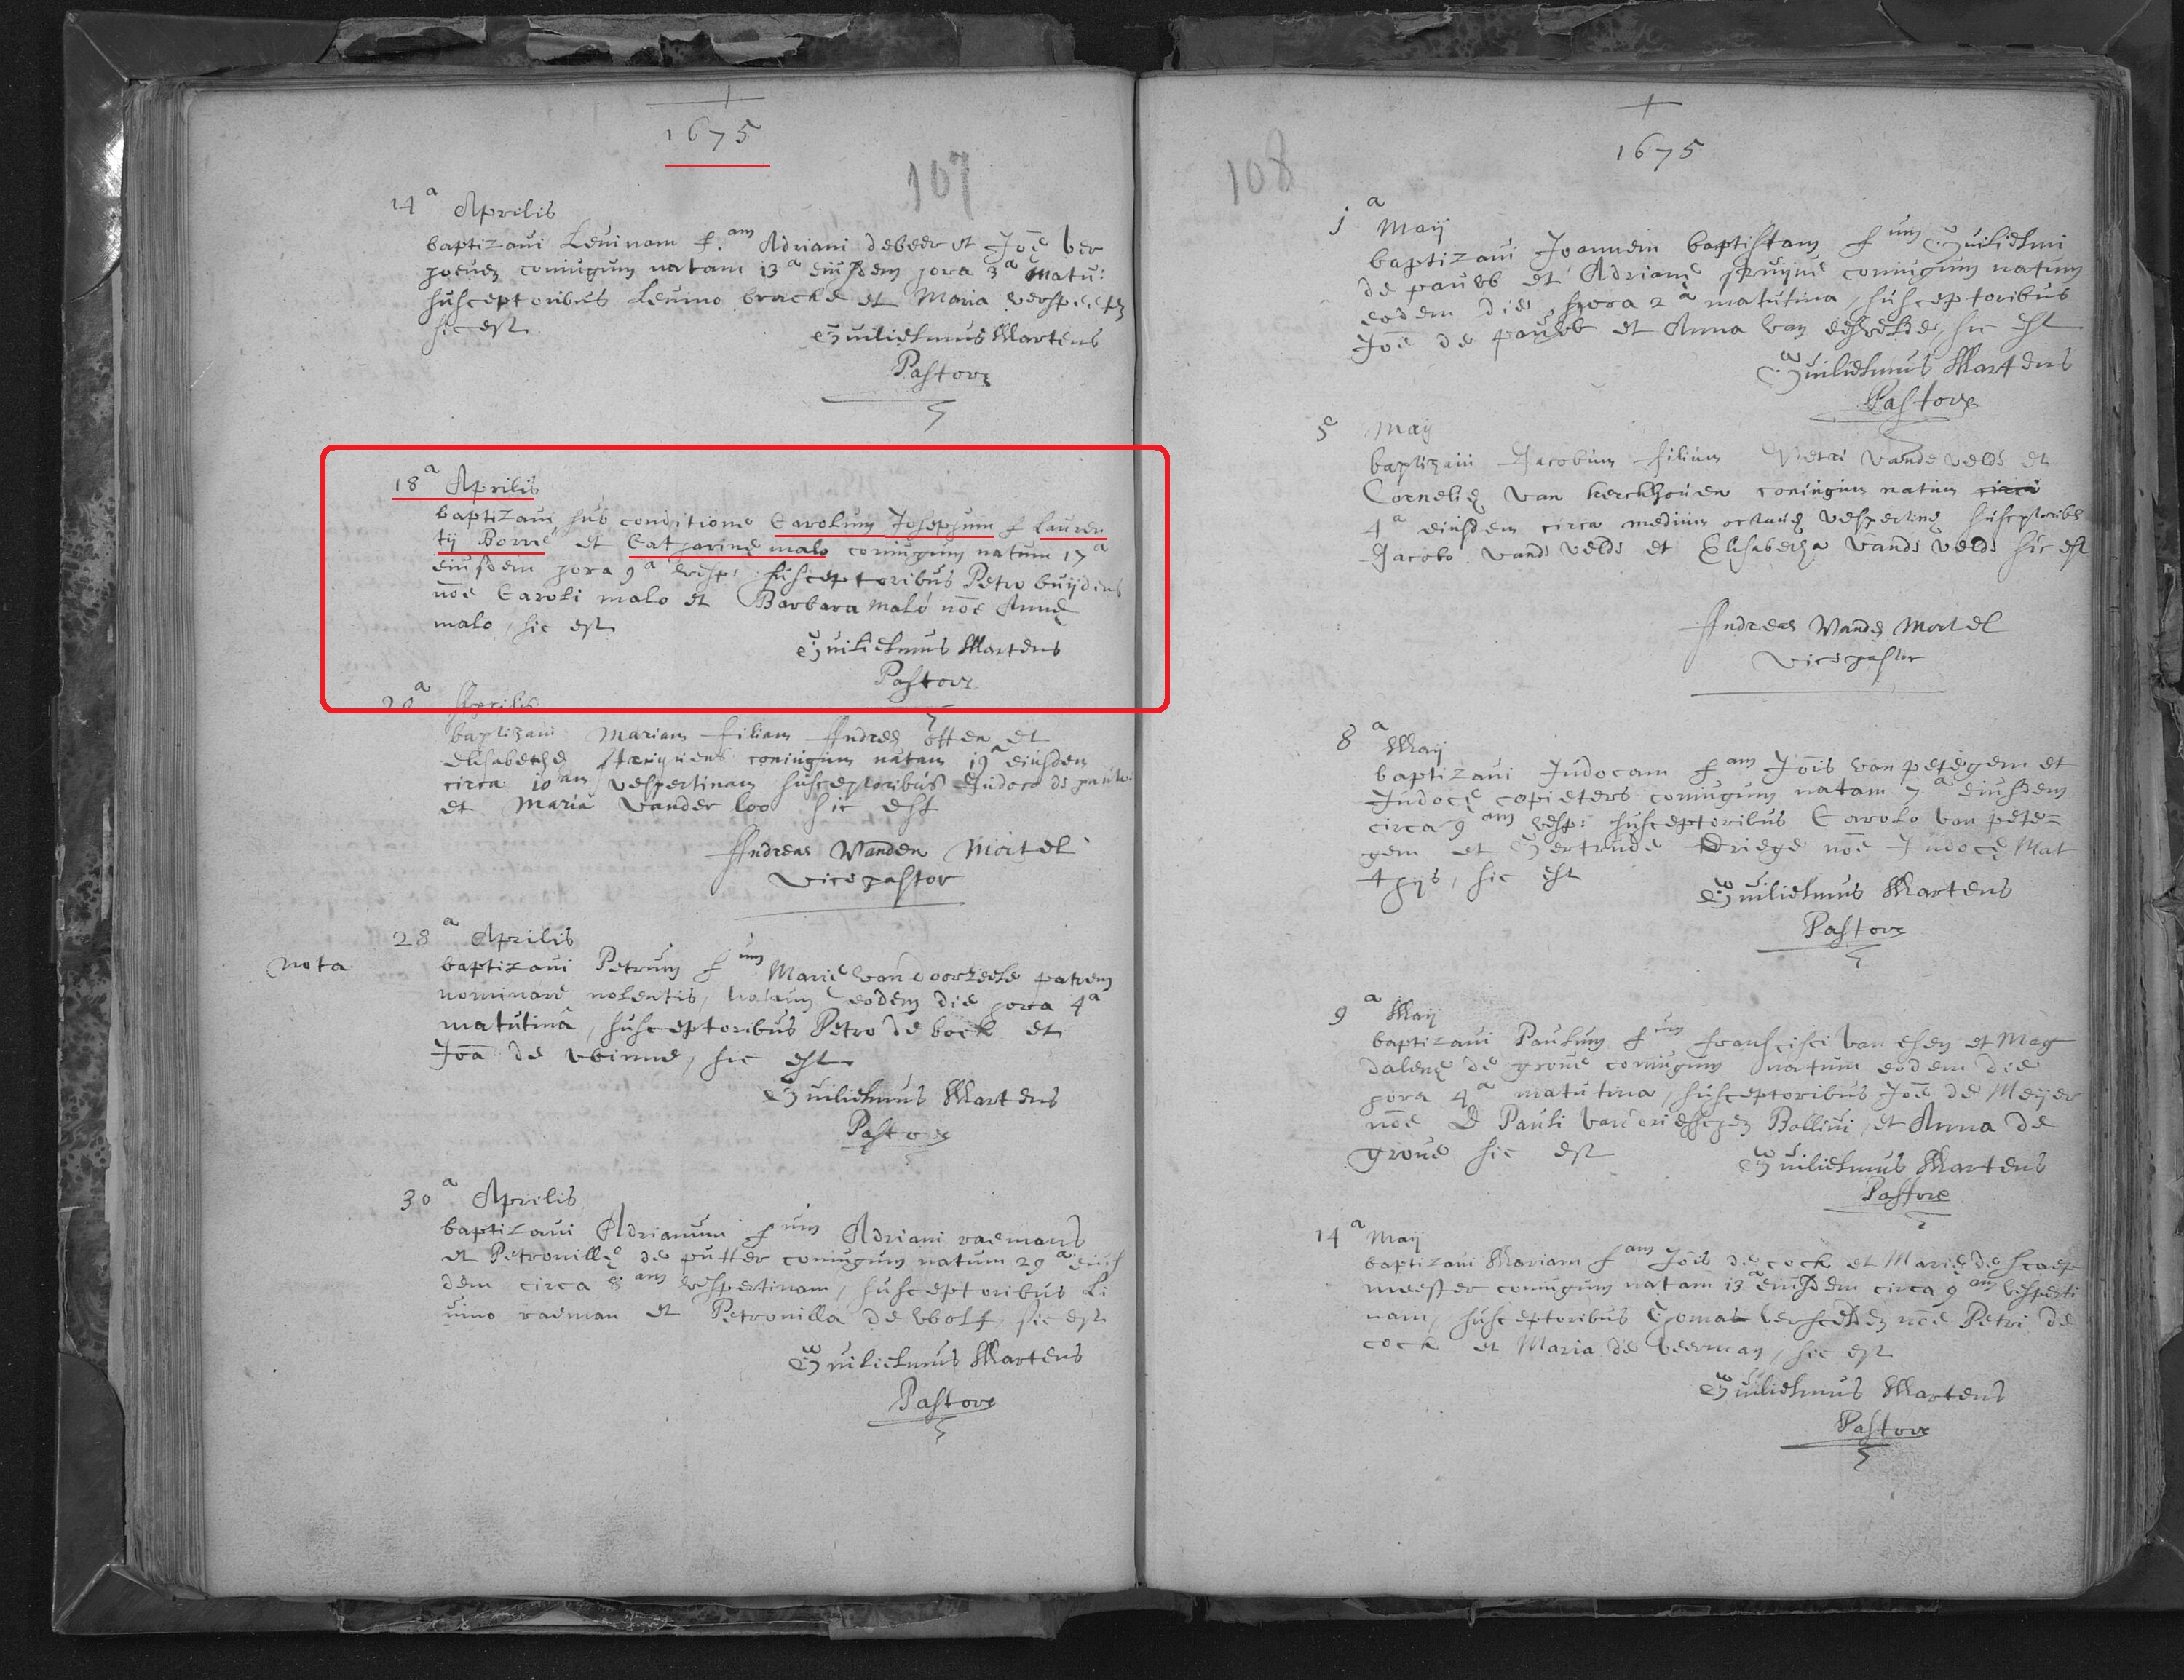 1675
107
14a Aprilis
baptizaui Leuinam f.am Adriani de beer et Joē ver
hoeuen coniugum natam 13a eiusdem hora 3a matu:
susceptoribus Leuino bracke et Maria verspeeten
sic est
Guilielmus Martens
Pastor
18a Aprilis
baptizaui sub conditione Carolum Josephum f Lauren
tij Borré et Catharinę malo coniugum natum 17a
eiusdem hora 9a vesp: susceptoribus Petro buijdens
nōe Caroli malo et Barbara malo nōe Annę
malo, sic est
Guilielmus Martens
Pastor
20a Aprilis
baptizaui Mariam filiam Andreę otten et
Elisabethę coniugum natam 19a eiusdem
circa 10am vespertinam susceptoribus Judoco de pauw
et Maria vander loo sic est
Andreas Vanden Mortel
vicepastor
28a Aprilis
nota
baptizaui Petrum fum Marię van doorsele patrem
nominare nolentis, natum eodem die hora 4a
matutina, susceptoribus Petro de bock et
Joā de, sic est
Guilielmus Martens
Pastor
30a Aprilis
baptizaui Adrianum fum Adriani raemans
et Petronillę de putter coniugum natum 29a eius
dem circa 8am vespertinam, susceptoribus Li
uino raeman et Petronilla de wolf, sic est
Guilielmus Martens
Pastore
108
1675
1a May
baptizaui Joannem baptistam fum Guilielmi
de pauw et Adrianę coniugum natum
eodem die, hora 2a matutina, susceptoribus
Joē de pauw et Anna van, sic est
Guilielmus Martens
Pastore
5 May
baptizaui Jacobum filium Petri vande velde et
Cornelię van kerckhouen coniugum natum circa
4a eiusdem circa medium octauę vespertinę susceptoribus
Jacobo vande velde et Elisabetha vande velde sic est
Andreas Vanden Mortel
vicepastor
8a May
baptizaui Judocam fam Jōis van petegem et
Judocę copieters coniugum natam 7a eiusdem
circa 9am vesp: susceptoribus Carolo van pete=
gem et Gertrude Driege nōe Judocę Mat
thijs, sic est
Guilielmus Martens
Pastore
9a May
baptizaui Paulum fum Francisci van esen et Mag
dalenę de groue coniugum natum eodem die
hora 4a matutina, susceptoribus Joē de Meijer
nōe D Pauli van driesschen Ballivi, et Anna de
groue sic est
Guilielmus Martens
Pastore
14a May
baptizaui Mariam fam Jōis de cock et Marię de scaep
meester coniugum natam 13a eiusdem circa 9am vesperti
nam, susceptoribus Thomas verschelden nōe Petri de
cock et Maria de veerman, sic est
Guilielmus Martens
Pastore